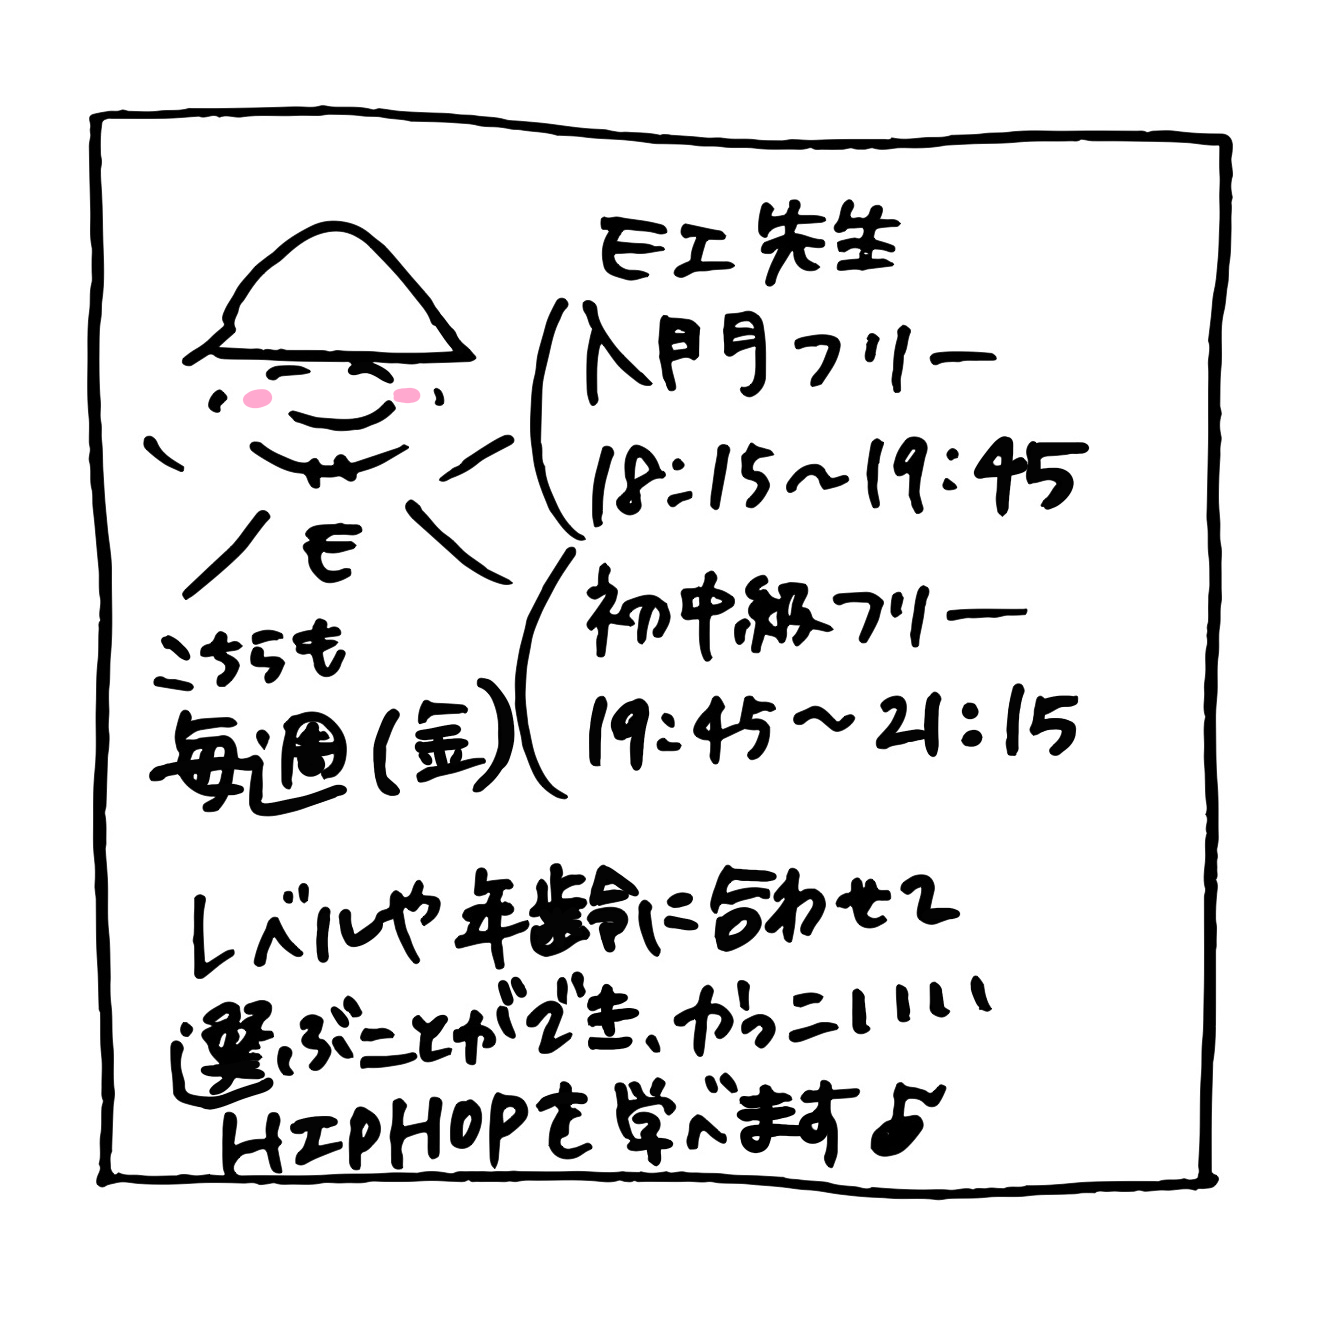 EI先生
入門フリー
18:15〜19:45
初中級フリー
19:45〜21:15
E
こちらも
毎週(金)
レベルや年齢に合わせて
選ぶことができ、かっこいいい
HIPHOPを学べます♪